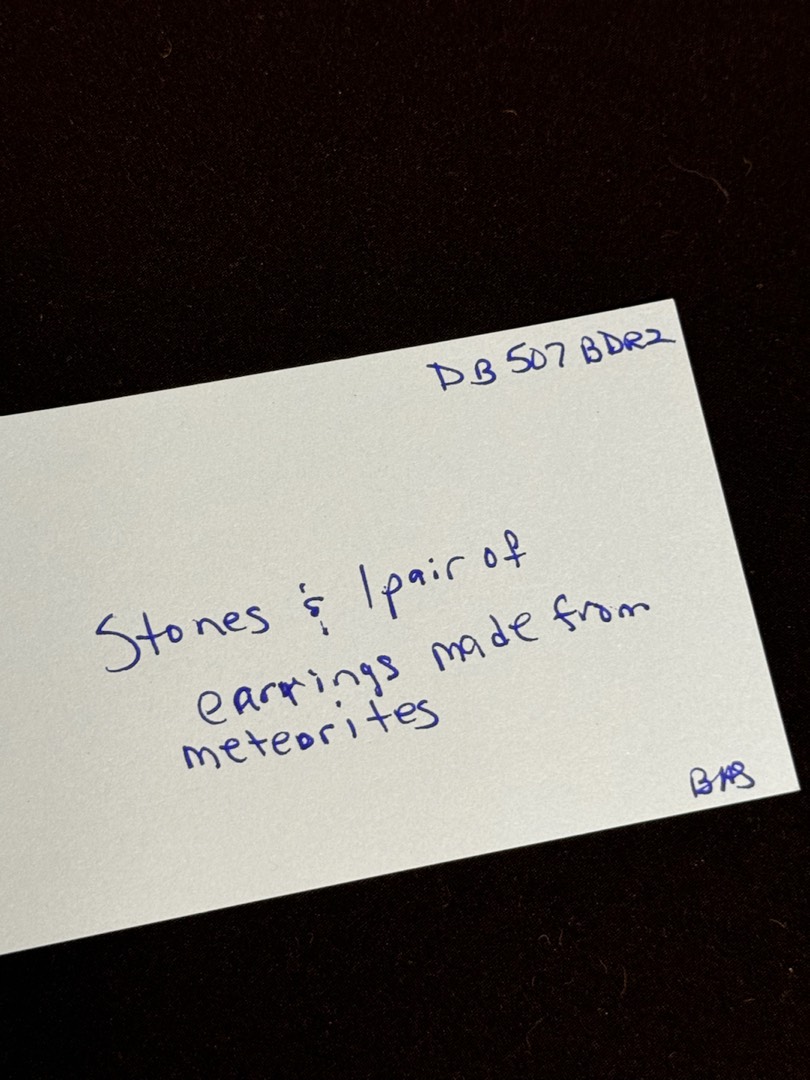 DB 507 BDR2
Stones & 1 pair of
earrings made from
meteorites